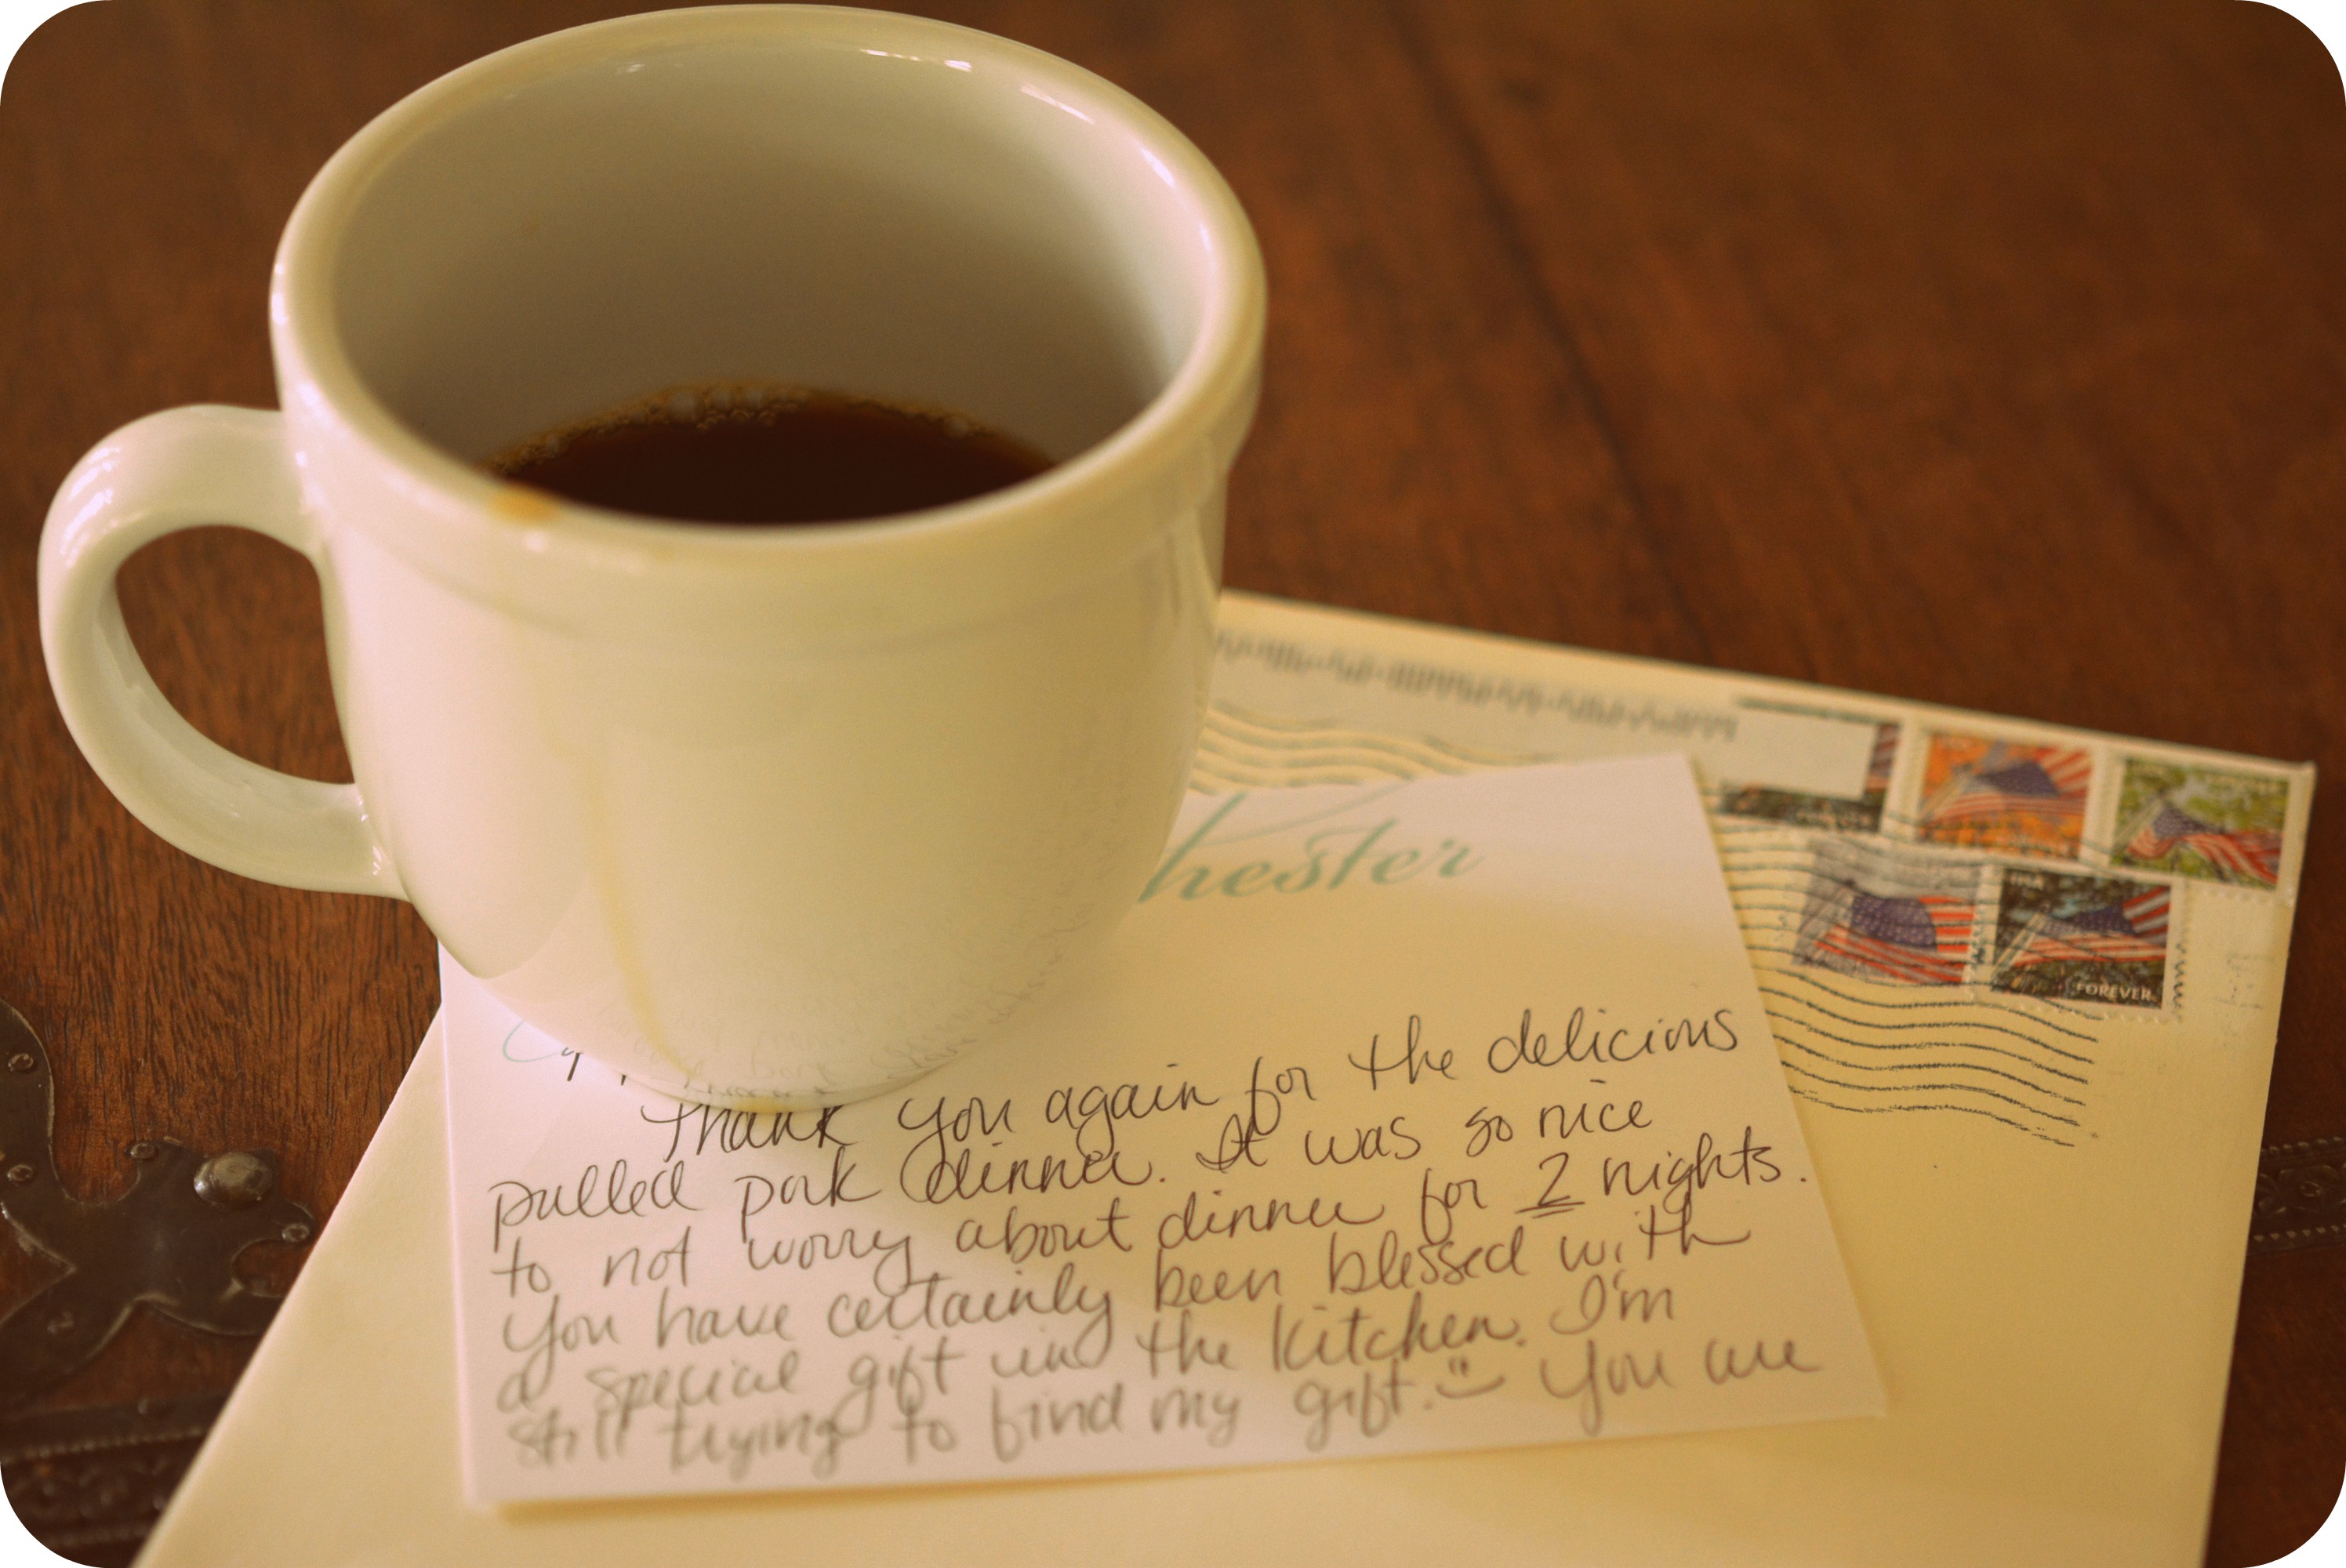 hester
Thank you again for the delicious
pulled pork dinner. It was so nice
to not worry about dinner for 2 nights.
You have certainly been blessed with
a special gift in the kitchen. I'm
still trying to find my gift. You are
USA
FOREVER
FOREVER